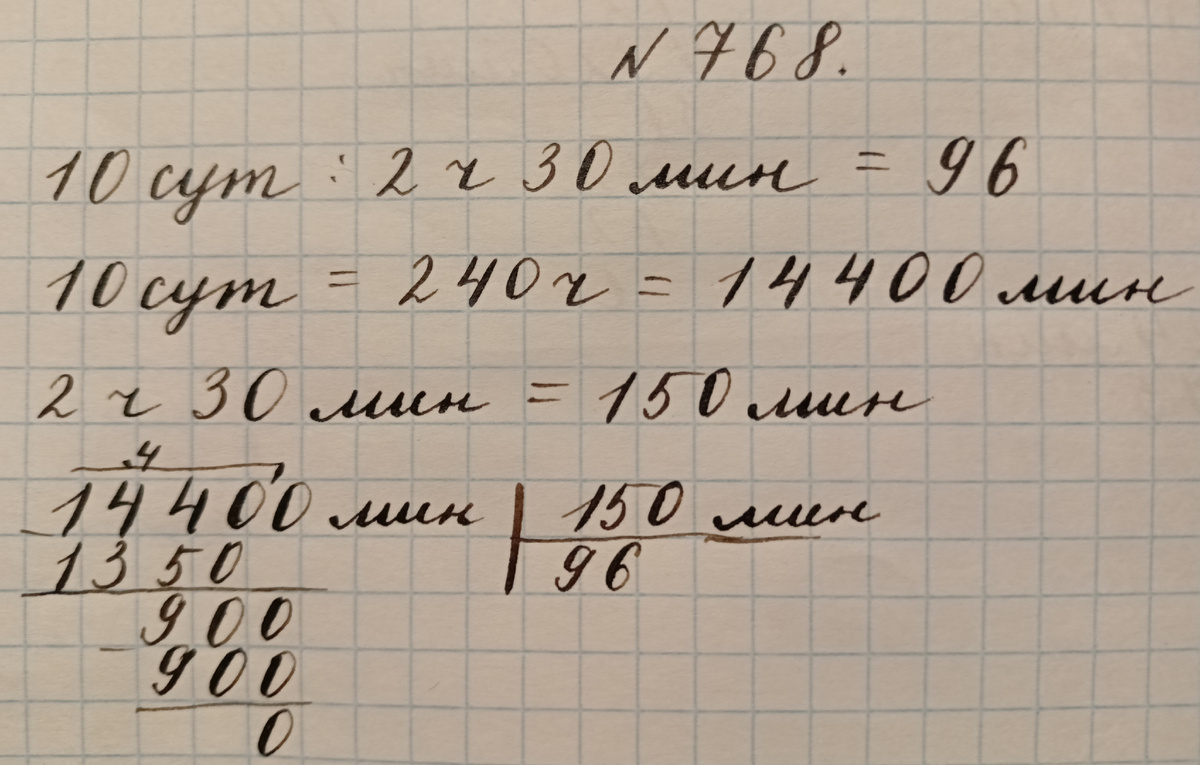 N 768.
10 сут : 2 ч 30 мин = 96
10 сут = 240 ч = 14400 мин
2 ч 30 мин = 150 мин
4
14400 мин | 150 мин
1350 96
900
900
0